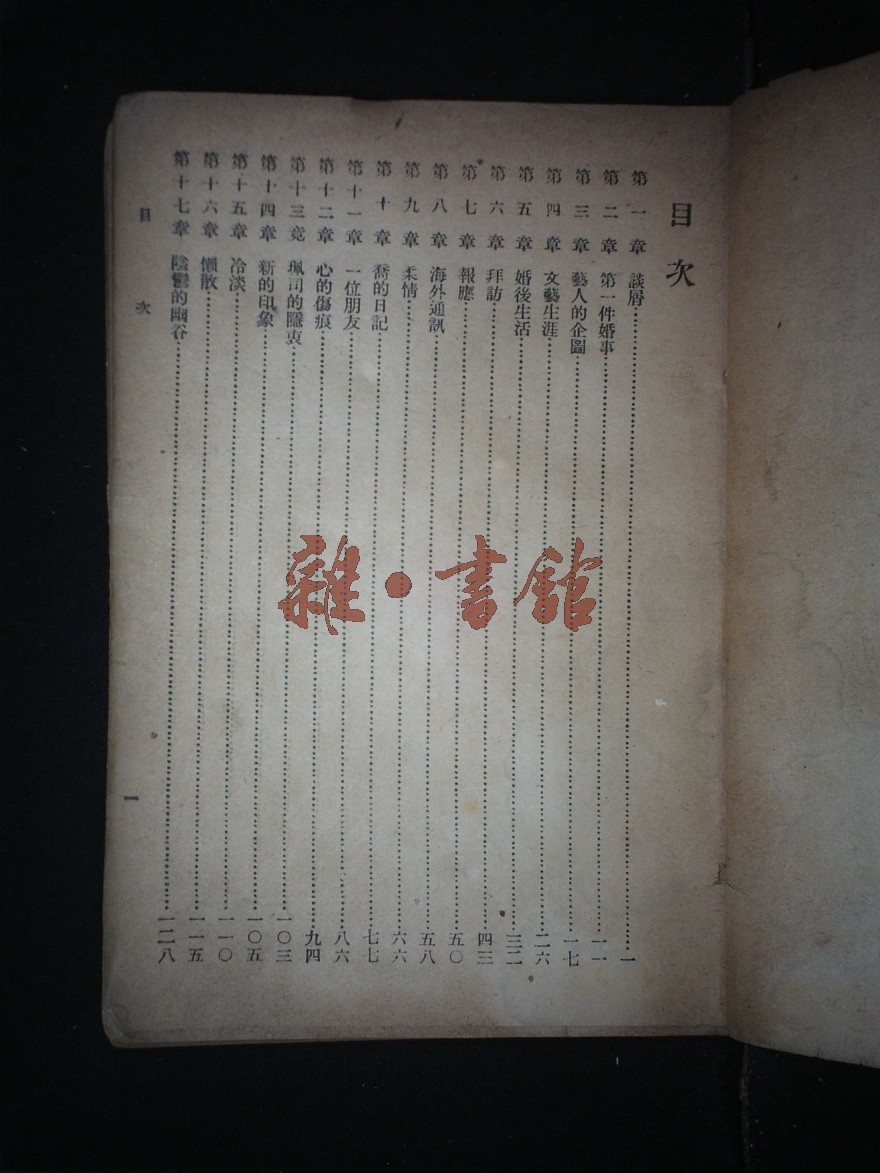 目次
第一章 談屑…………一
第二章 第一件婚事…………一一
第三章 藝人的企圖…………一七
第四章 文藝生涯…………二六
第五章 婚後生活…………三二
第六章 拜訪…………四三
第七章 報應…………五〇
第八章 海外通訊…………五八
第九章 柔情…………六六
第十章 喬的日記…………七七
第十一章 一位朋友…………八六
第十二章 心的傷痕…………九四
第十三章 珮司的隱衷…………一〇三
第十四章 新的印象…………一〇五
第十五章 冷淡…………一一〇
第十六章 懶散…………一一五
第十七章 陰鬱的幽谷…………一二八
目次
一
雜·書館